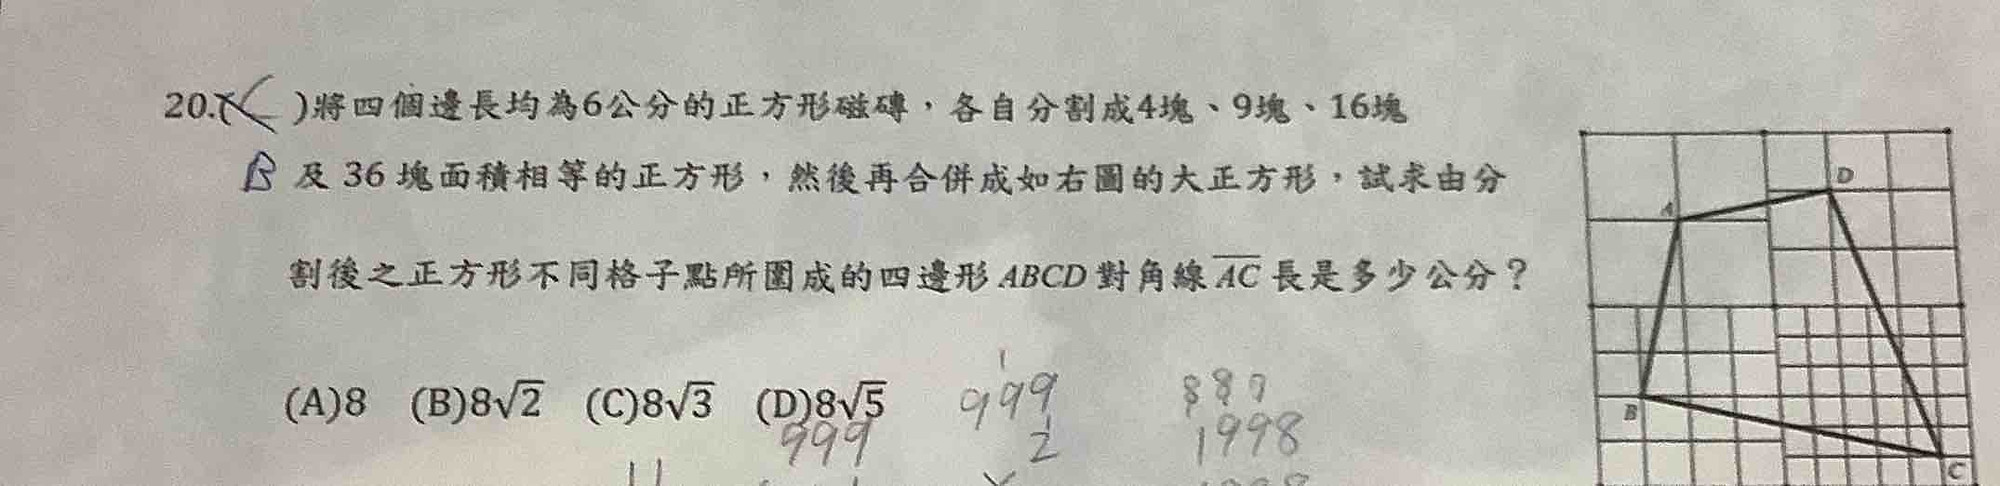 20.( )將四個邊長均為6公分的正方形磁磚，各自分割成4塊、9塊、16塊
B 及 36 塊面積相等的正方形，然後再合併成如右圖的大正方形，試求由分
割後之正方形不同格子點所圍成的四邊形 ABCD 對角線 A̅C̅ 長是多少公分？
(A)8 (B)8√2 (C)8√3 (D)8√5
1
999
889
999
2
1998
A
D
B
C